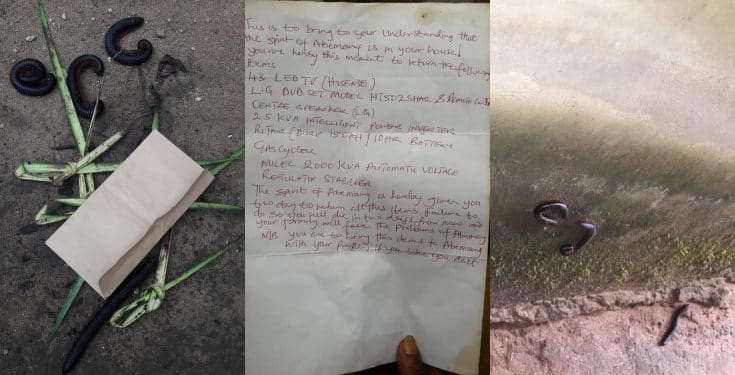 This is to bring to your Understanding that
the spirit of Abemany is in your house!
you are hereby this moment to return the following
Items
43 LED TV (HISENSE)
L.G DVD SET MODEL HT502SHAR & Remote
CENTRE SPEARKER (LG)
2.5 KVA INTELLIGENT POWER INVERTER
RITAR 150AH / 10HR BATTERY
GAS CYCLER
NULEC 2000 KVA AUTOMATIC VOLTAGE
REGULATOR STABILIER
The spirit of Abemany is hereby given you
two day to return all this items failure to
do so you will die in two days from now and
your family will face the problems of Abemany
N/B you are to bring this items to Abemany
with your people, if you like you do it